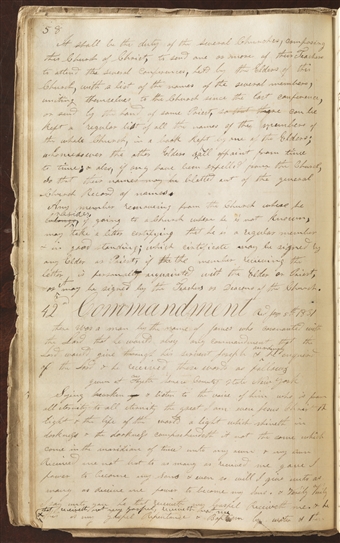 58
It shall be the duty of the several Churches, composing
this Church of Christ, to send one or more of their Teachers
to attend the several conferences, held by the Elders of this
Church, with a list of the names of the several members,
uniting themselves to the Church since the last conference,
or send by the hand of some Priest, so that there can be
kept a regular list of all the names of the members of
the whole Church, in a book kept by one of the Elders;
whomsoever the other Elders shall appoint from time
to time; & also, if any have been expelled from the Church,
so that their names may be blotted out of the general
Church Record of names.
Any member removing from the Church where he
resides,
if going to a Church where he is not known,
may take a letter certifying that he is a regular member
& in good standing; which certificate may be signed by
any Elder or Priest, if the member receiving the
letter, is personally acquainted with the Elder or Priest,
or it may be signed by the Teachers or Deacons of the Church.
42nd Commandment
There was a man by the name of James who covenanted with
the Lord that he would obey any commandment that the
Lord would give through his servant Joseph
& he received these words as follows
given at Fayette Seneca County State of New York
Saying hearken & listen to the voice of him who is from
all eternity to all eternity the great I am even Jesus Christ the
light & the life of the world a light which shineth in
darkness & the darkness comprehendeth it not the same which
came in the meridian of time unto my own & my own
received me not but to as many as received me gave I
power to become my sons & even so will I give unto as
many as receive me power to become my sons & verily verily
I say unto you he that receiveth my gospel receiveth me & he
that receiveth not my gospel receiveth not me
& this is my gospel repentance & Baptism by water & th